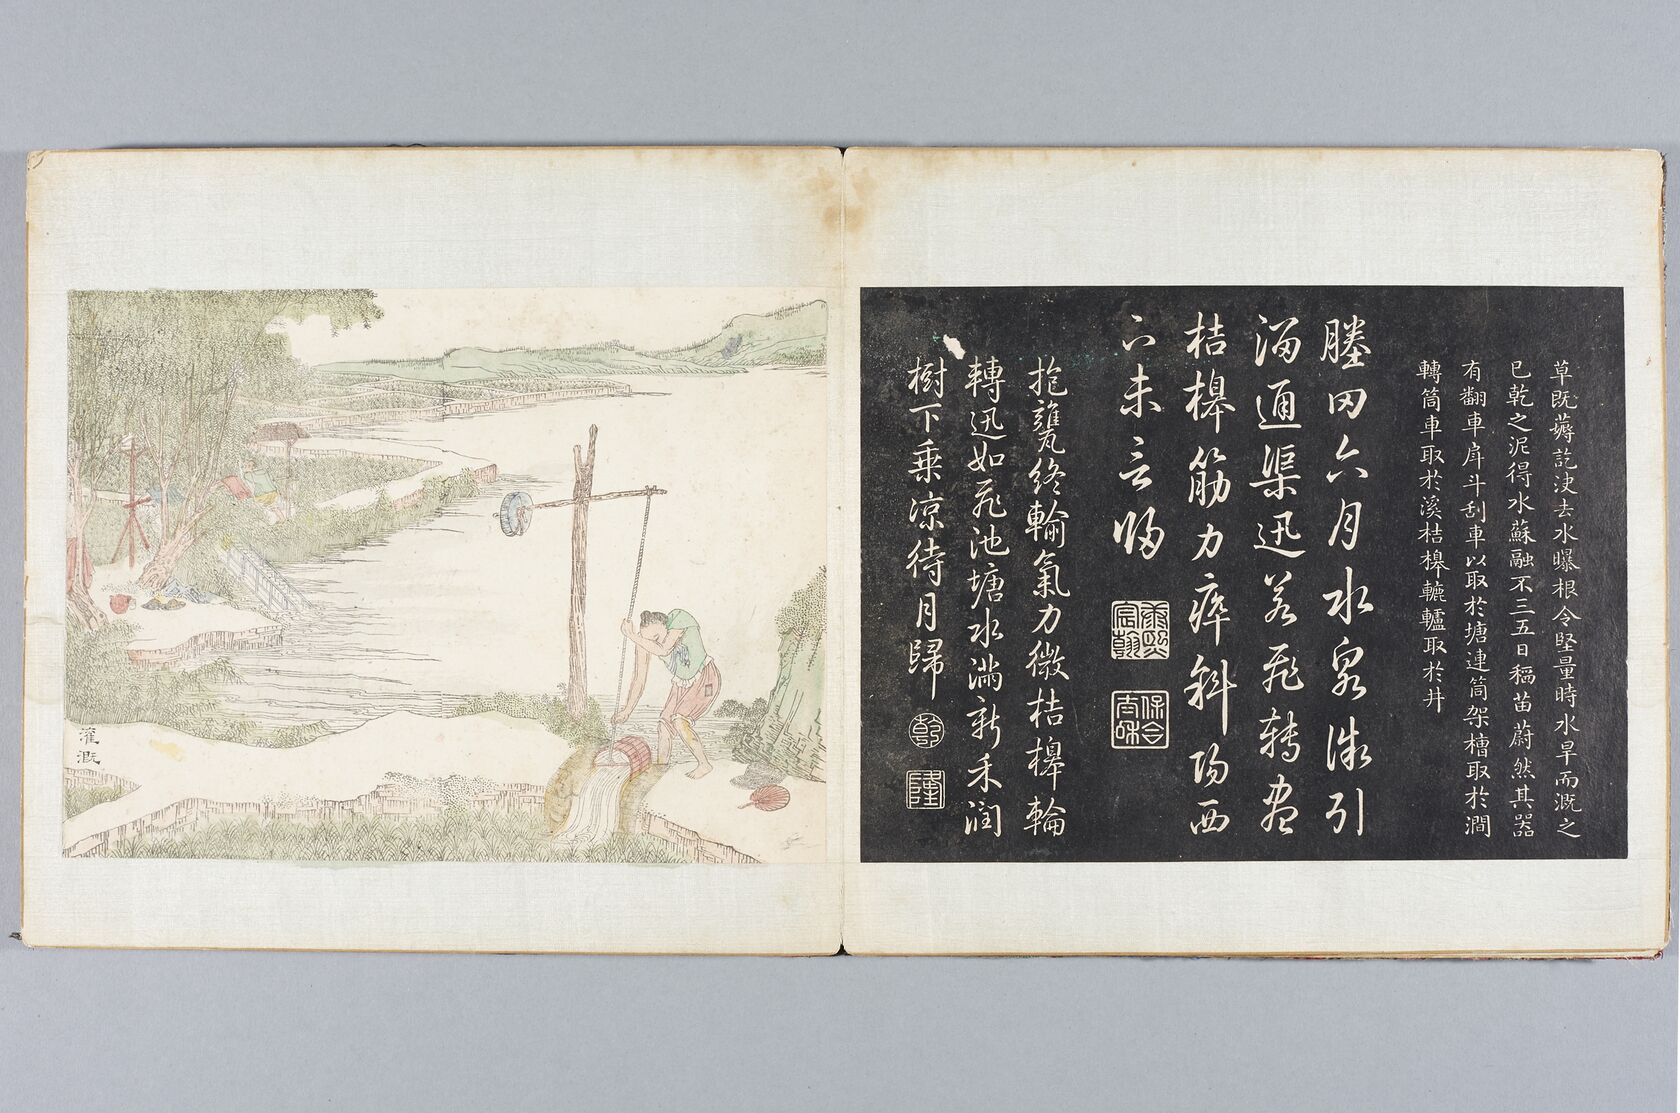 草既薅訖決去水曝根令堅量時水旱而溉之
已乾之泥得水蘇融不三五日稻苗蔚然其器
有翻車戽斗刮車以取於塘連筒架槽取於澗
轉筒車取於溪桔槔轆轤取於井
塍田六月水泉微引
溜通渠迅若飛轉盡
桔槔筋力瘁斜陽西
下未言歸
康熙宸翰
保合太和
抱甕終輸氣力微桔槔輪
轉迅如飛池塘水滿新禾潤
樹下乘涼待月歸
乾
隆
灌溉